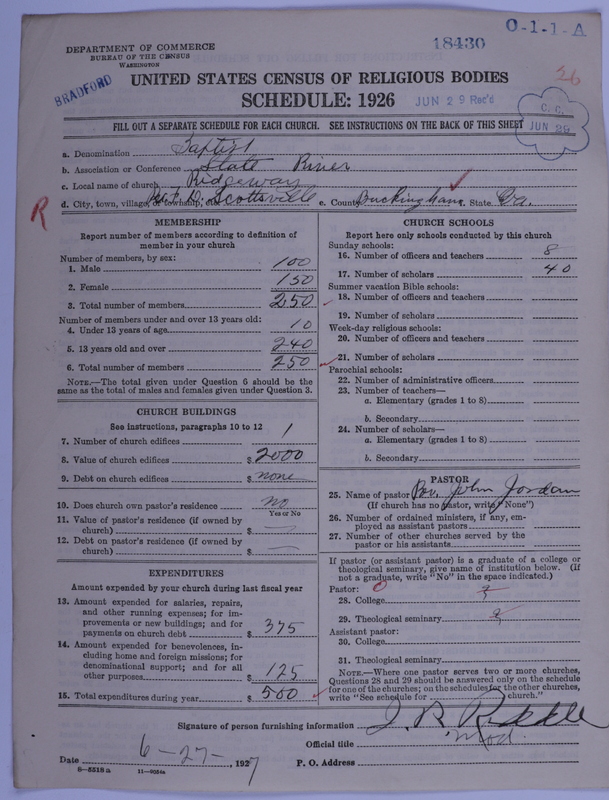 O-1-1-A
18430
DEPARTMENT OF COMMERCE
BUREAU OF THE CENSUS
WASHINGTON
BRADFORD
26
UNITED STATES CENSUS OF RELIGIOUS BODIES
SCHEDULE: 1926
JUN 29 Rec'd
C. C.
JUN 29
FILL OUT A SEPARATE SCHEDULE FOR EACH CHURCH. SEE INSTRUCTIONS ON THE BACK OF THIS SHEET
a. Denomination Baptist
b. Association or Conference State River
c. Local name of church Ridgeway
d. City, town, village, or township, etc. Scottsville e. County Buckingham State Va.
R
MEMBERSHIP
Report number of members according to definition of
member in your church
Number of members, by sex:
1. Male 100
2. Female 150
3. Total number of members 250
Number of members under and over 13 years old:
4. Under 13 years of age 10
5. 13 years old and over 240
6. Total number of members 250
NOTE.—The total given under Question 6 should be
same as the total of males and females given under Question 3.
CHURCH BUILDINGS
See instructions, paragraphs 10 to 12
7. Number of church edifices 1
8. Value of church edifices $ 2000
9. Debt on church edifices $ none
10. Does church own pastor's residence? no
Yes or No
11. Value of pastor's residence (if owned by
church) $
12. Debt on pastor's residence (if owned by
church) $ —
EXPENDITURES
Amount expended by your church during last fiscal year
13. Amount expended for salaries, repairs,
and other running expenses; for im-
provements or new buildings; and for
payments on church debt $ 375
14. Amount expended for benevolences, in-
cluding home and foreign missions; for
denominational support; and for all
other purposes $ 125
15. Total expenditures during year $ 500
CHURCH SCHOOLS
Report here only schools conducted by this church
Sunday schools:
16. Number of officers and teachers 8
17. Number of scholars 40
Summer vacation Bible schools:
18. Number of officers and teachers
19. Number of scholars
Week-day religious schools:
20. Number of officers and teachers
21. Number of scholars
Parochial schools:
22. Number of administrative officers
23. Number of teachers—
a. Elementary (grades 1 to 8)
b. Secondary
24. Number of scholars—
a. Elementary (grades 1 to 8)
b. Secondary
PASTOR
25. Name of pastor Rev. John Jordan
(If church has no pastor, write "None")
26. Number of ordained ministers, if any, em-
ployed as assistant pastors
27. Number of other churches served by the
pastor or his assistants
If pastor (or assistant pastor) is a graduate of a college or
theological seminary, give name of institution below. (If
not a graduate, write "No" in the space indicated.)
Pastor: 0
28. College
29. Theological seminary
Assistant pastor:
30. College
31. Theological seminary
NOTE.—Where one pastor serves two or more churches,
Questions 28 and 29 should be answered only on the schedule
for one of the churches; on the schedules for the other churches,
write "See schedule for church."
Signature of person furnishing information J. R.
Official title Mod.
Date 6-27-, 1927 P. O. Address
8-5518a 11-9054a